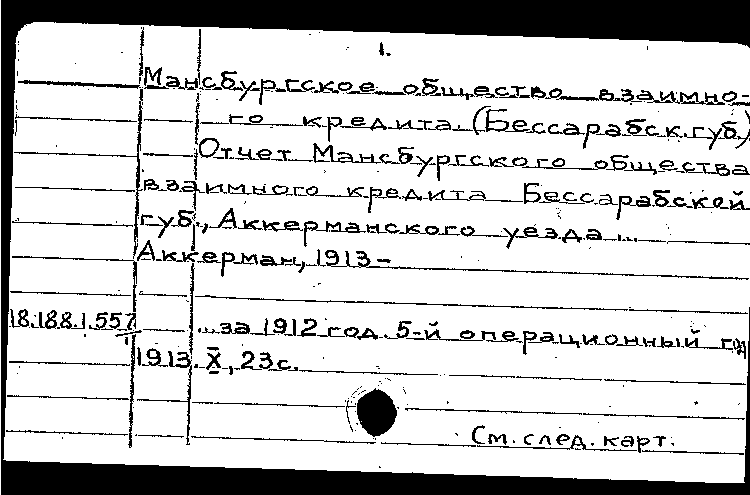 1.
Мансбургское общество взаимно-
го кредита. (Бессарабск. губ.)
Отчет Мансбургского общества
взаимного кредита Бессарабской
губ., Аккерманского уезда...
Аккерман, 1913-
18.188.1.557 ...за 1912 год. 5-й операционный год
1
1913. X, 23с.
См. след. карт.